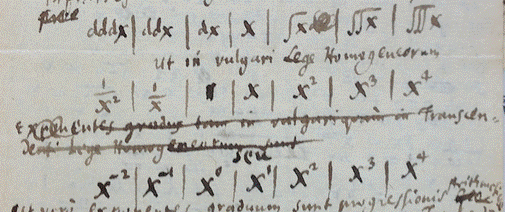 dddx | ddx | dx | x | ∫x | ∫∫x | ∫∫∫x
ut in vulgari Lege Homogeneorum
1/x² | 1/x | 1 | x | x² | x³ | x⁴
Exponentes gradus tam in vulgari quam in Transcen=
denti Lege Homogeneorum sunt
seu
x⁻² | x⁻¹ | x⁰ | x¹ | x² | x³ | x⁴
exponentes graduum sunt progressionis Arithmeticae